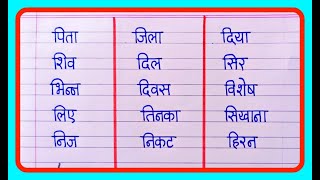 पिता जिला दिया
शिव दिल सिर
भिन्न दिवस विशेष
लिए तिनका सिखाना
निज निकट हिरन